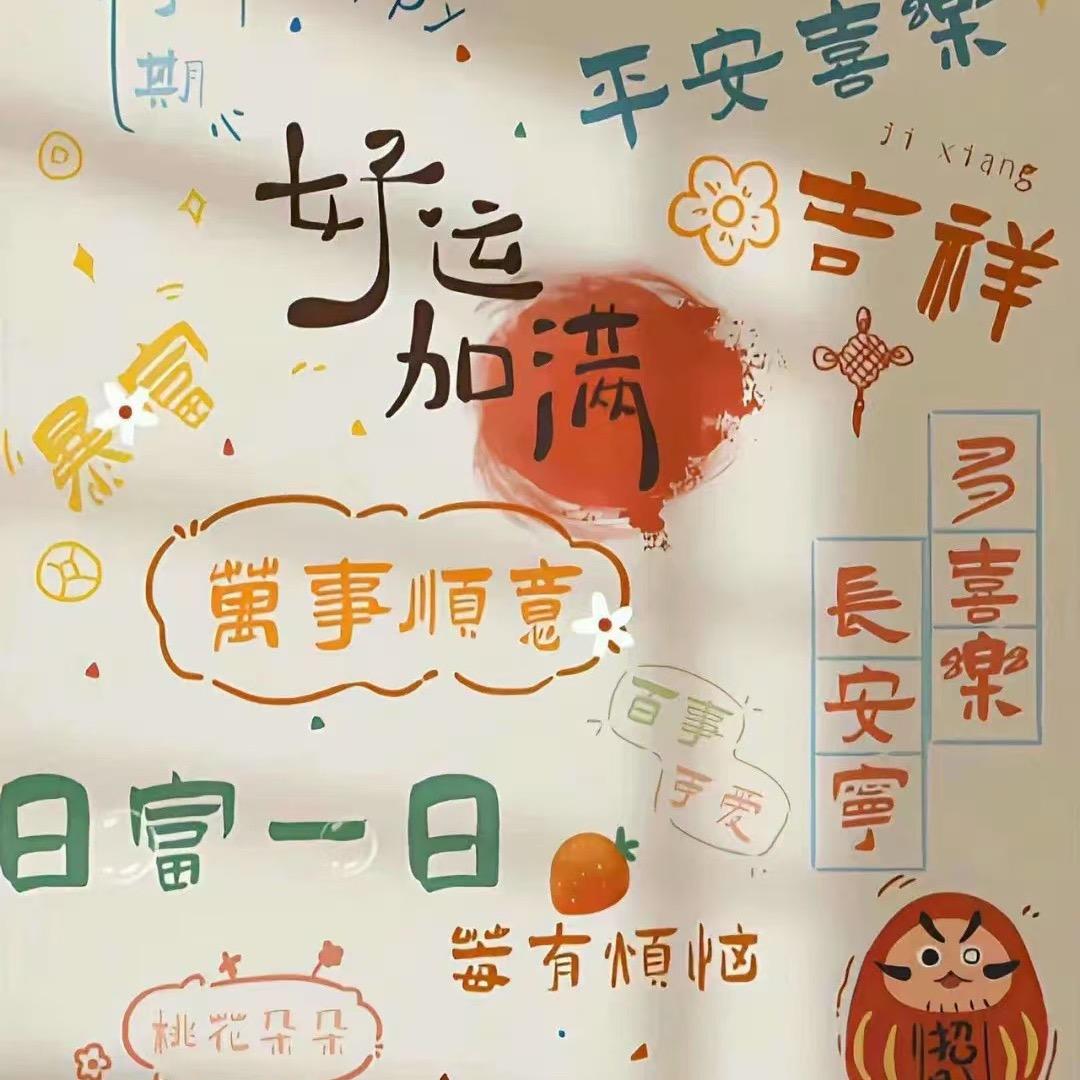 期
平安喜樂
ji xiang
吉祥
好运
加满
暴富
萬事順意
多喜樂
長安寧
百事
可爱
日富一日
莓有煩恼
桃花朵朵